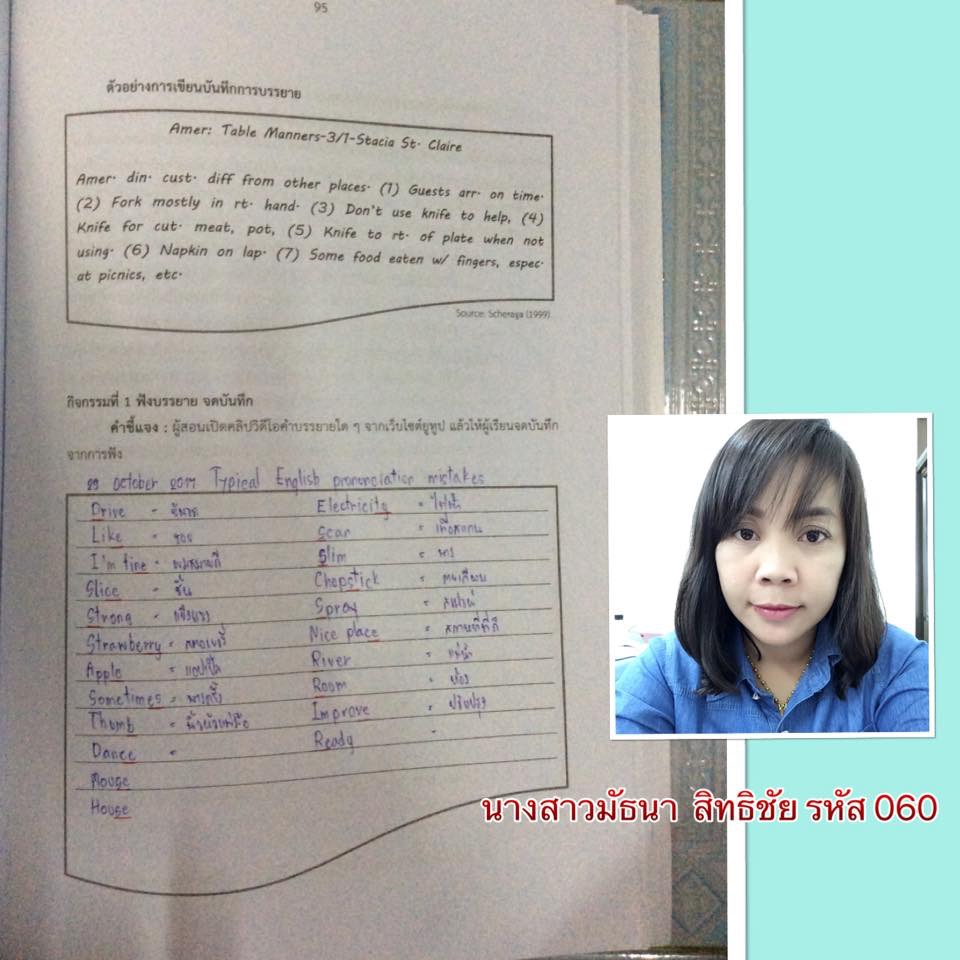 95
ตัวอย่างการเขียนบันทึกการบรรยาย
Amer: Table Manners-3/1-Stacia St. Claire
Amer. din. cust. diff from other places. (1) Guests arr. on time.
(2) Fork mostly in rt. hand. (3) Don't use knife to help, (4)
Knife for cut. meat, pot, (5) Knife to rt. of plate when not
using. (6) Napkin on lap. (7) Some food eaten w/ fingers, espec.
at picnics, etc.
Source: Scheraga (1999)
กิจกรรมที่ 1 ฟังบรรยาย จดบันทึก
คำชี้แจง : ผู้สอนเปิดคลิปวิดีโอคำบรรยายใด ๆ จากเว็บไซต์ยูทูป แล้วให้ผู้เรียนจดบันทึก
จากการฟัง
October 2017 Typical English pronunciation mistakes
Drive = Electricity = ไฟฟ้า
Like = ชอบ Scar =
I'm fine = Slim =
Slice = ชิ้น Chopstick = ตะเกียบ
Strong = แข็งแรง Spray = สเปรย์
Strawberry = สตอเบอรี่ Nice place = สถานที่ที่ดี
Apple = แอปเปิ้ล River = แม่น้ำ
Sometimes = บางครั้ง Room = ห้อง
Thumb = นิ้วหัวแม่มือ Improve = ปรับปรุง
Dance = Ready -
Mouse
House
นางสาวมัธนา สิทธิชัย รหัส 060